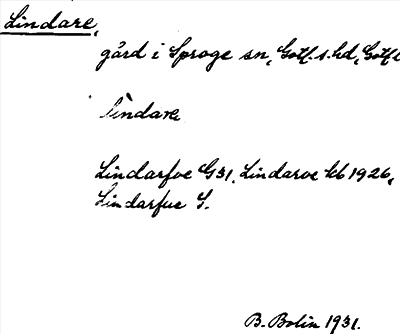 Lindare,
gård i Sproge sn, Gotl. s. hd, Gotl. l
lìndare
Lindarfve G31, Lindarve kb 1926,
Lindarfue S.
B. Bolin 1931.